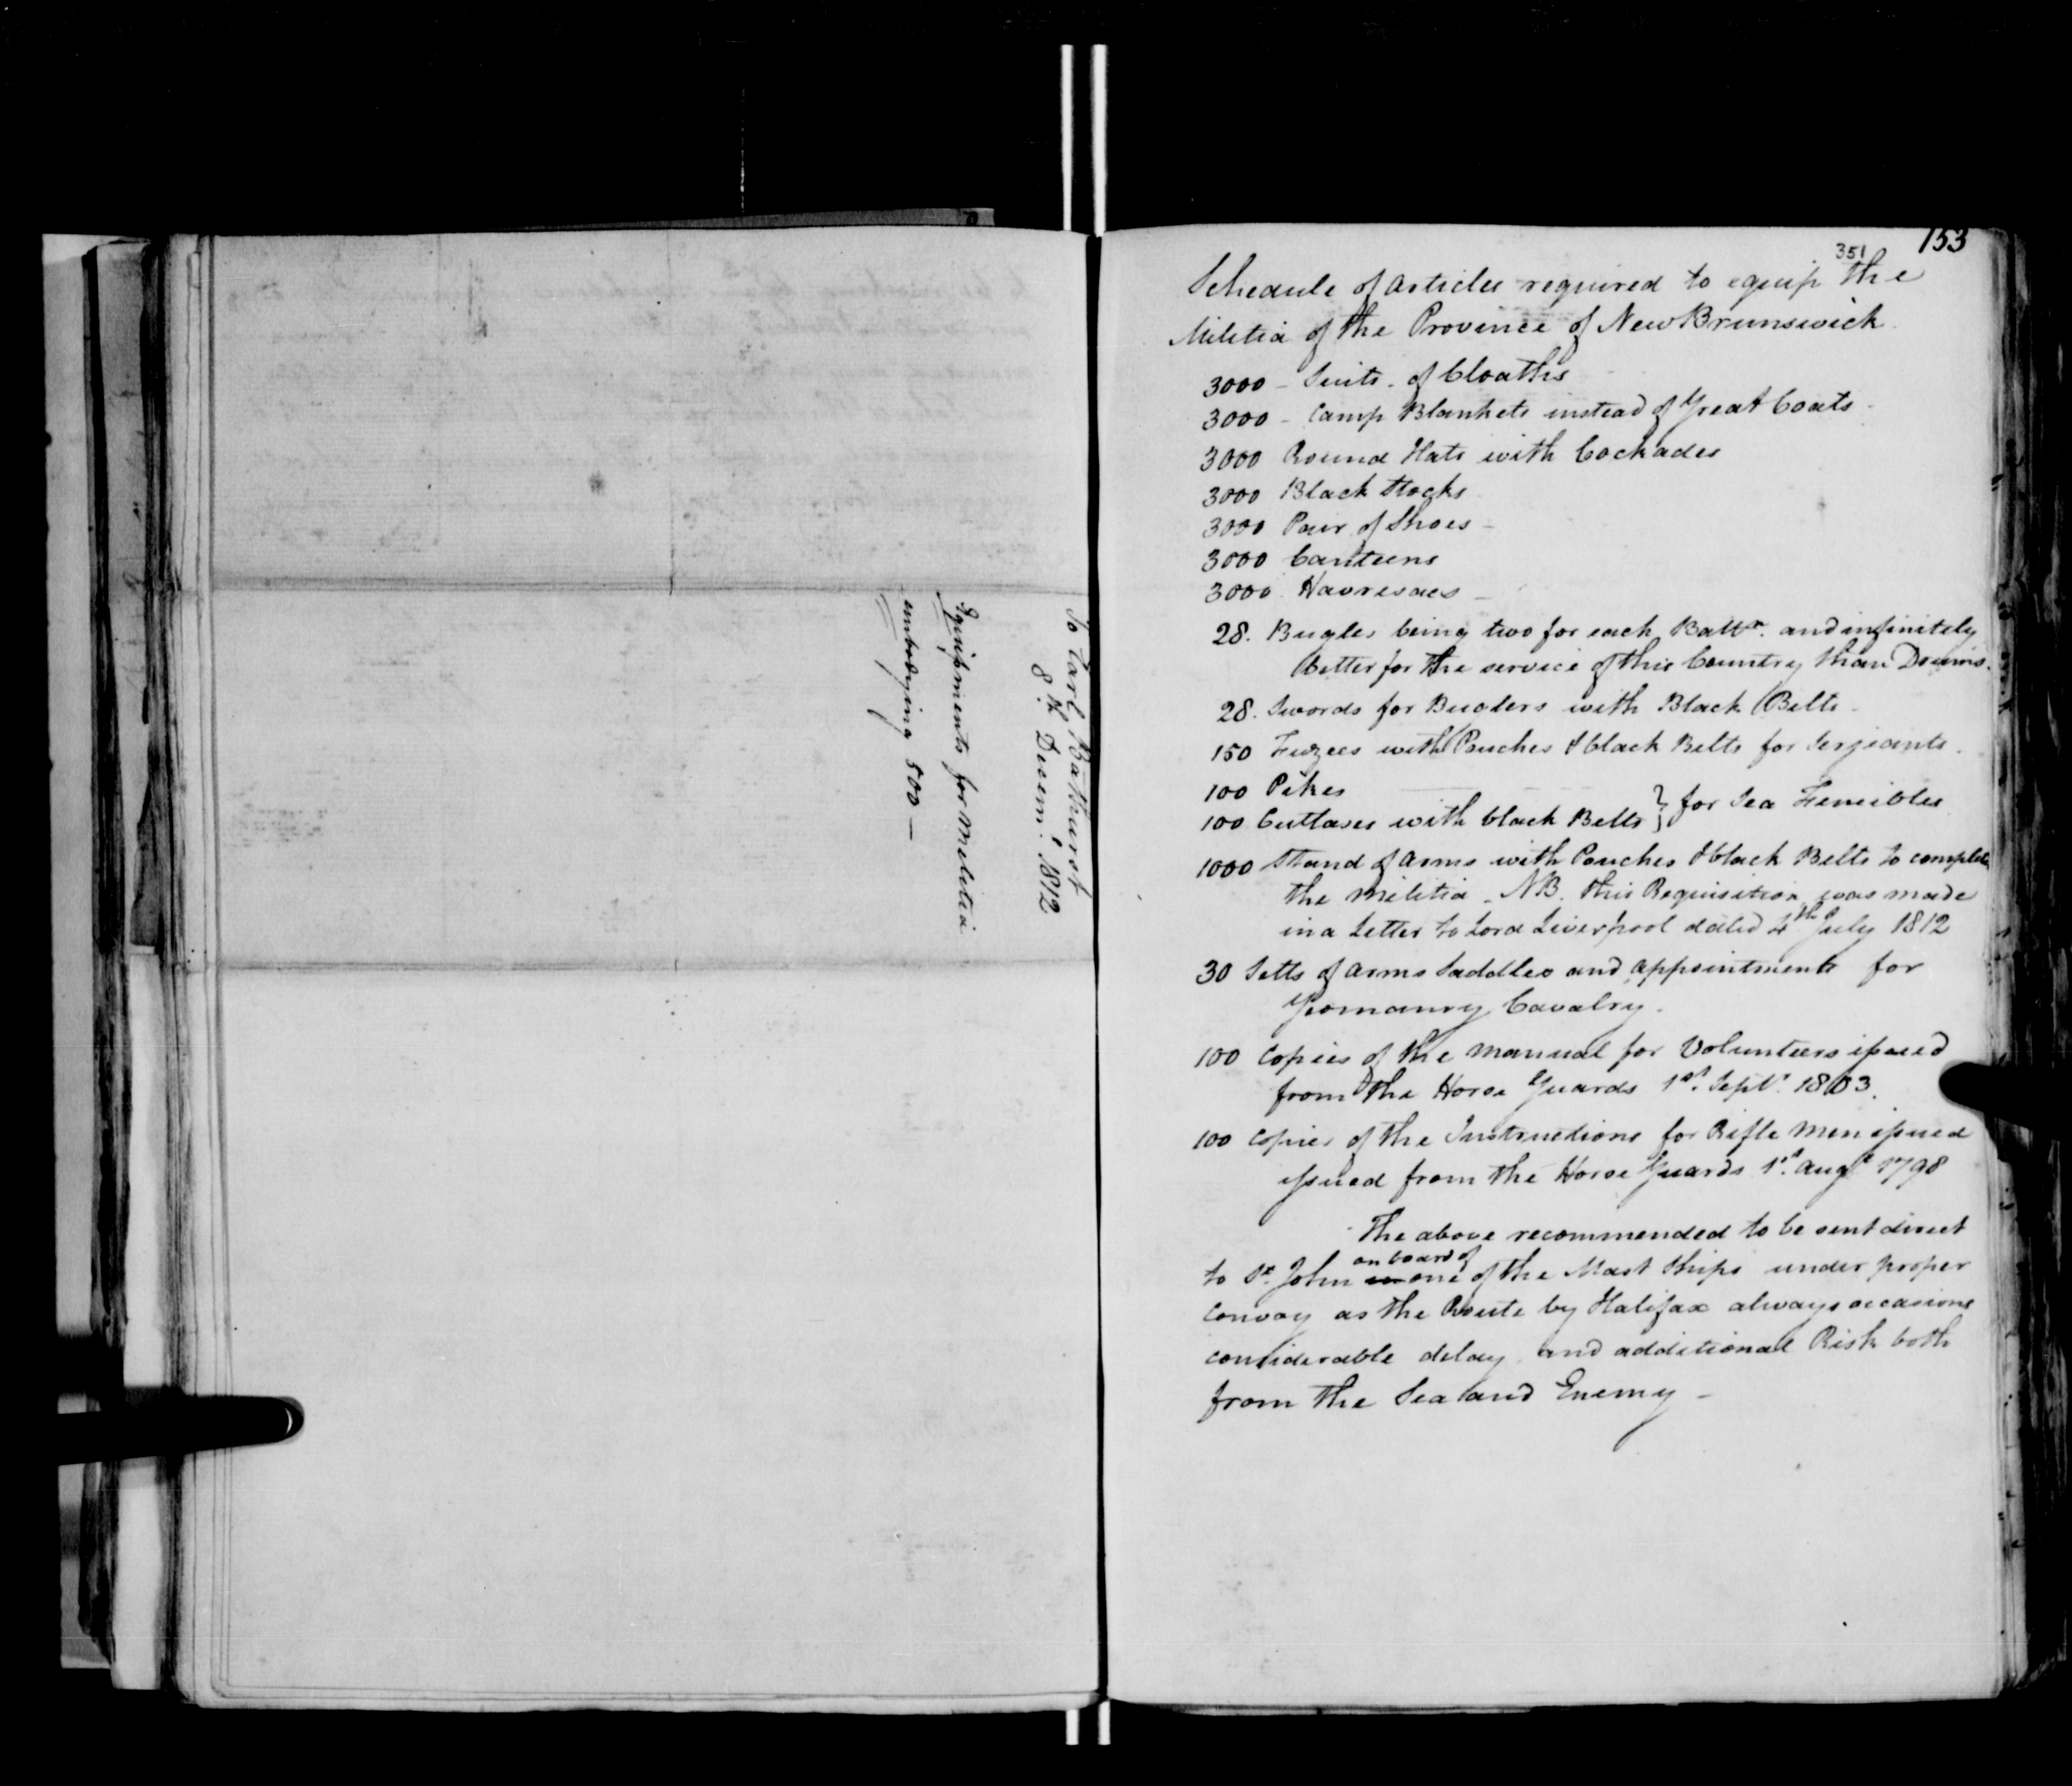 To Earl Bathurst
8.th Decem.r 1812
Equipments for Militia
embodying 500 –
153
351
Schedule of Articles required to equip the
Militia of the Province of New Brunswick
3000 – Suits of Cloaths
3000 – Camp Blankets instead of Great Coats
3000 Round Hats with Cockades
3000 Black Stocks
3000 Pair of Shoes –
3000 Canteens
3000 Havresacs –
28. Bugles being two for each Battn. and infinitely
better for the service of this Country than Drums.
28. Swords for Buglers with Black Belts –
150 Fuzees with Pouches & black Belts for Serjeants.
100 Pikes
100 Cutlases with black Belts } for Sea Fencibles
1000 Stand of Arms with Pouches & black Belts to complete
the Militia – NB. this Requisition was made
in a Letter to Lord Liverpool dated 4th July 1812
30 Setts of Arms Saddles and Appointments for
Yeomanry Cavalry.
100 Copies of the Manual for Volunteers issued
from the Horse Guards 1st. Sept. 1803.
100 Copies of the Instructions for Rifle Men issued
issued from the Horse Guards 1st. Augt 1798
The above recommended to be sent direct
on board of
to St. John in one of the Mast Ships under proper
Convoy as the Route by Halifax always occasions
considerable delay and additional Risk both
from the Sea and Enemy –